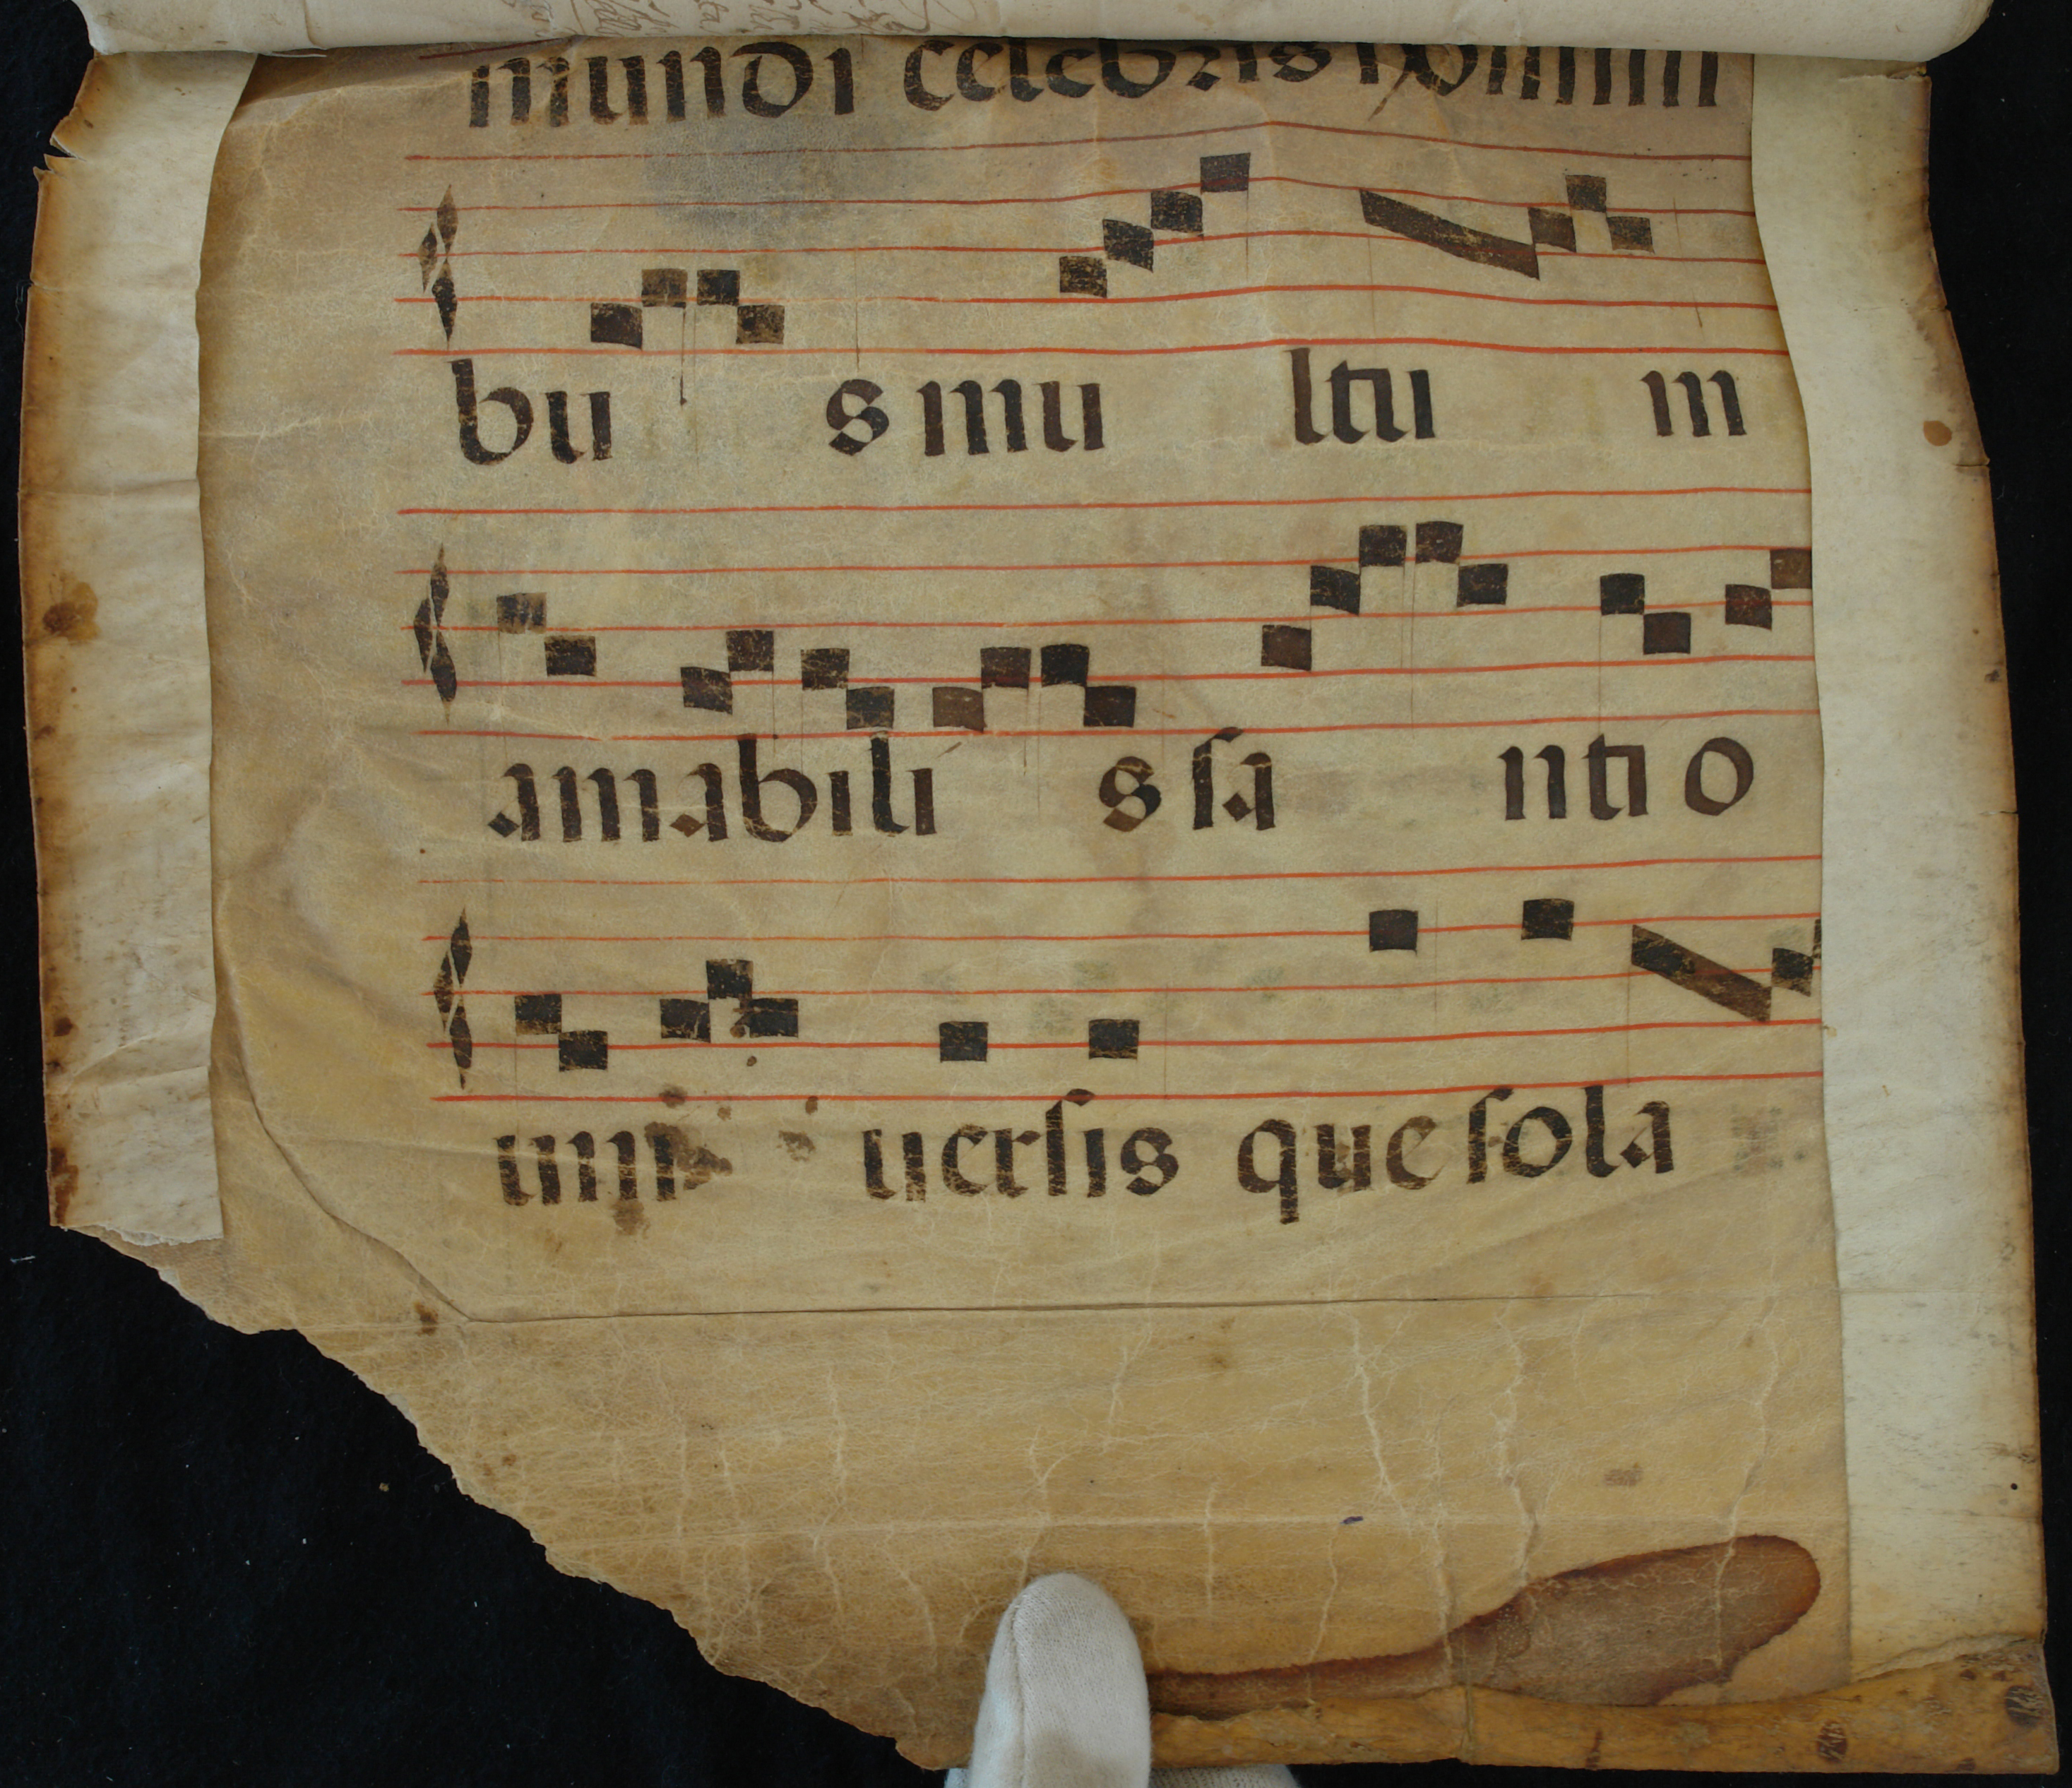 mundi celebris homini
bu s mu ltu m
amabili s sa nti o
uni uersis que sola